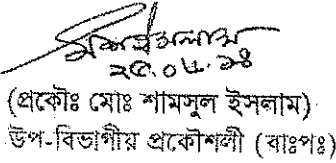 ২৫.০৮.১৪
(প্রকৌঃ মোঃ শামসুল ইসলাম)
উপ-বিভাগীয় প্রকৌশলী (বাঃপঃ)